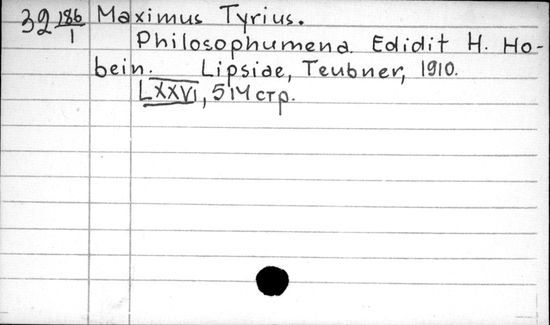 39 186/1 Maximus Tyrius.
Philosophumena. Edidit H. Ho-
bein. Lipsiae, Teubner, 1910.
LXXVI, 514 стр.